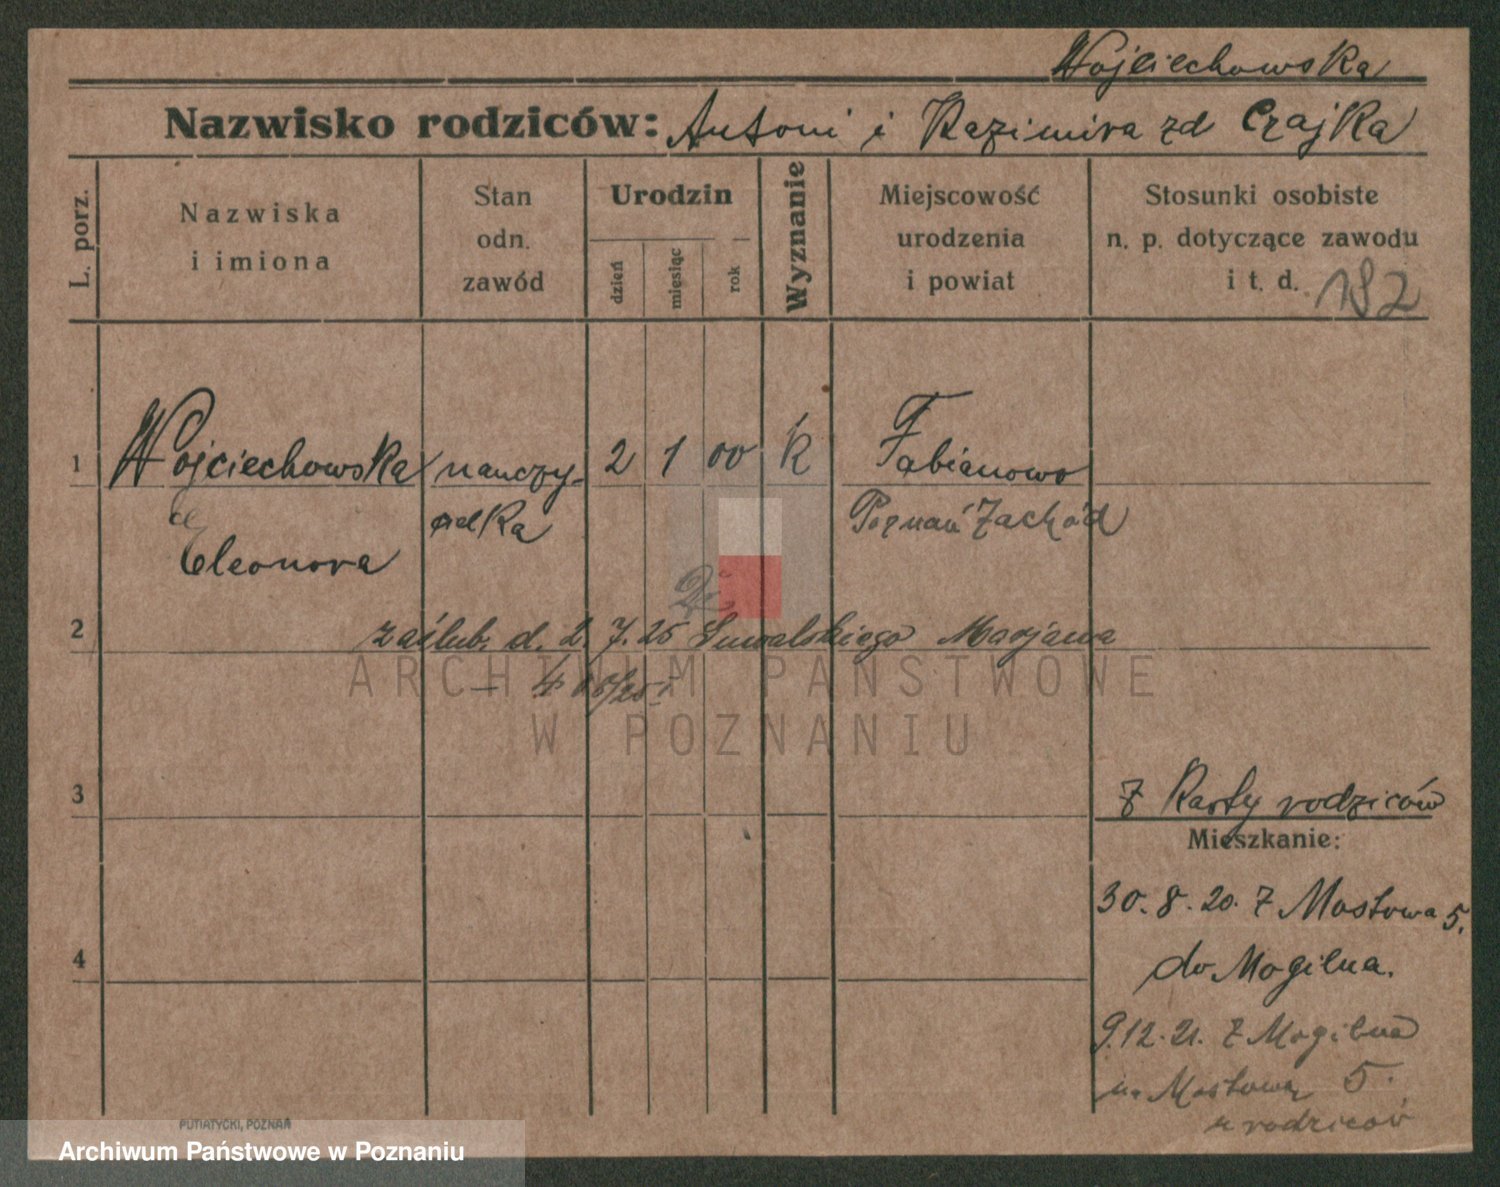 Wojciechowska
Nazwisko rodziców: Antoni i Kazimira zd Czajka
L. porz.
Nazwiska
i imiona
Stan
odn.
zawód
Urodzin
dzień
miesiąc
rok
Wyznanie
Miejscowość
urodzenia
i powiat
Stosunki osobiste
n. p. dotyczące zawodu
i t. d. 192
1 Wojciechowska nauczy- 2 1 00 k Fabianowo
cielka Poznań Zachód
Eleonora
2 zaślub. d. 2. 7. 25 Suwalskiego Marjana
ARCHIWUM PAŃSTWOWE
W POZNANIU
3
z Karty rodziców
Mieszkanie:
30. 8. 20. z Mostowa 5.
4
do Mogilna.
9.12.21. z Mogilna
na Mostową 5.
u rodziców
PUTIATYCKI, POZNAŃ
Archiwum Państwowe w Poznaniu